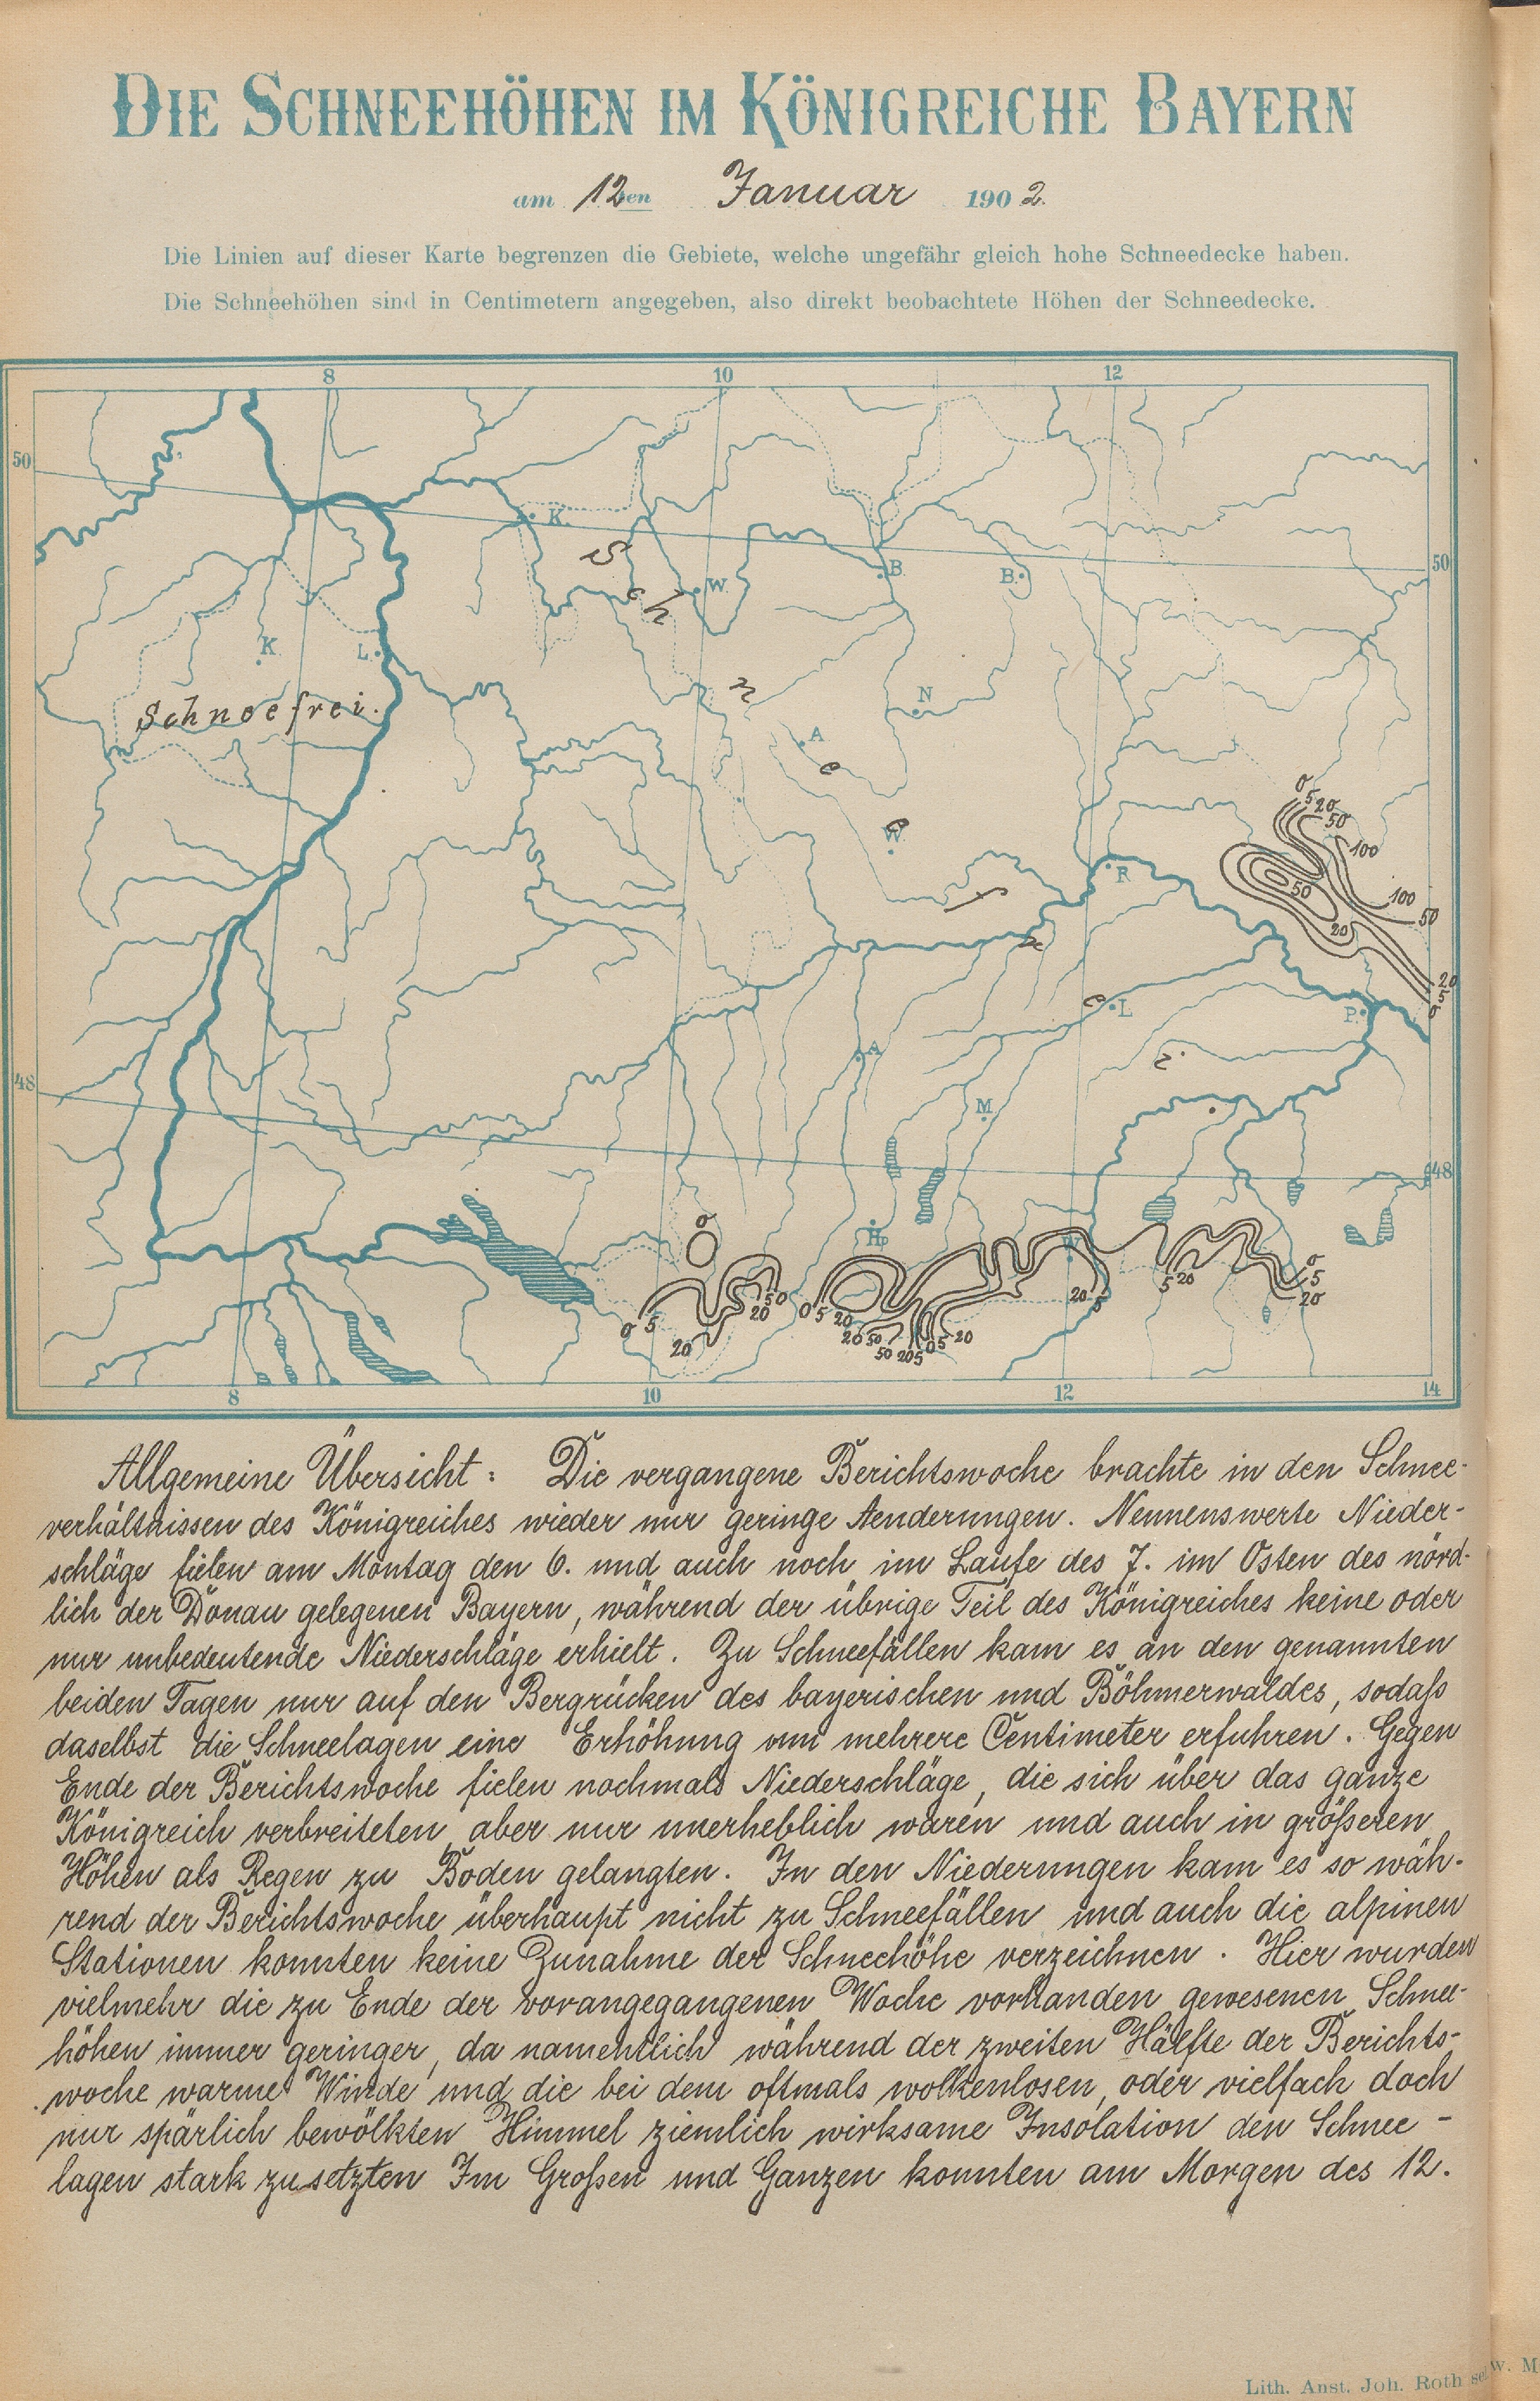 DIE SCHNEEHÖHEN IM KÖNIGREICHE BAYERN
am 12ten Januar 1902.
Die Linien auf dieser Karte begrenzen die Gebiete, welche ungefähr gleich hohe Schneedecke haben.
Die Schneehöhen sind in Centimetern angegeben, also direkt beobachtete Höhen der Schneedecke.
8 10 12
50
50
K.
W.
B.
B.
K.
L.
Schneefrei.
N
A
W.
Schneefrei.
0 5 20 50
100
R
50
100 50
20
20
5
0
L
P.
A
48
M
48
H.P.
0
W
0 5 20
20 50
0 5 20
20 50
50 20 5 0 5 20
20 5
5 20
0
5
20
8 10 12 14
Allgemeine Übersicht: Die vergangene Berichtswoche brachte in den Schnee-
verhältnissen des Königreiches wieder nur geringe Aenderungen. Nennenswerte Nieder-
schläge fielen am Montag den 6. und auch noch im Laufe des 7. im Osten des nörd-
lich der Donau gelegenen Bayern, während der übrige Teil des Königreiches keine oder
nur unbedeutende Niederschläge erhielt. Zu Schneefällen kam es an den genannten
beiden Tagen nur auf den Bergrücken des bayerischen und Böhmerwaldes, sodaß
daselbst die Schneelagen eine Erhöhung um mehrere Centimeter erfuhren. Gegen
Ende der Berichtswoche fielen nochmals Niederschläge, die sich über das ganze
Königreich verbreiteten, aber nur unerheblich waren und auch in größeren
Höhen als Regen zu Boden gelangten. In den Niederungen kam es so wäh-
rend der Berichtswoche überhaupt nicht zu Schneefällen und auch die alpinen
Stationen konnten keine Zunahme der Schneehöhe verzeichnen. Hier wurden
vielmehr die zu Ende der vorangegangenen Woche vorhanden gewesenen Schnee-
höhen immer geringer, da namentlich während der zweiten Hälfte der Berichts-
woche warme Winde und die bei dem oftmals wolkenlosen, oder vielfach doch
nur spärlich bewölkten Himmel ziemlich wirksame Insolation den Schnee-
lagen stark zusetzten Im Großen und Ganzen konnten am Morgen des 12.
Lith. Anst. Joh. Roth sel. W. M